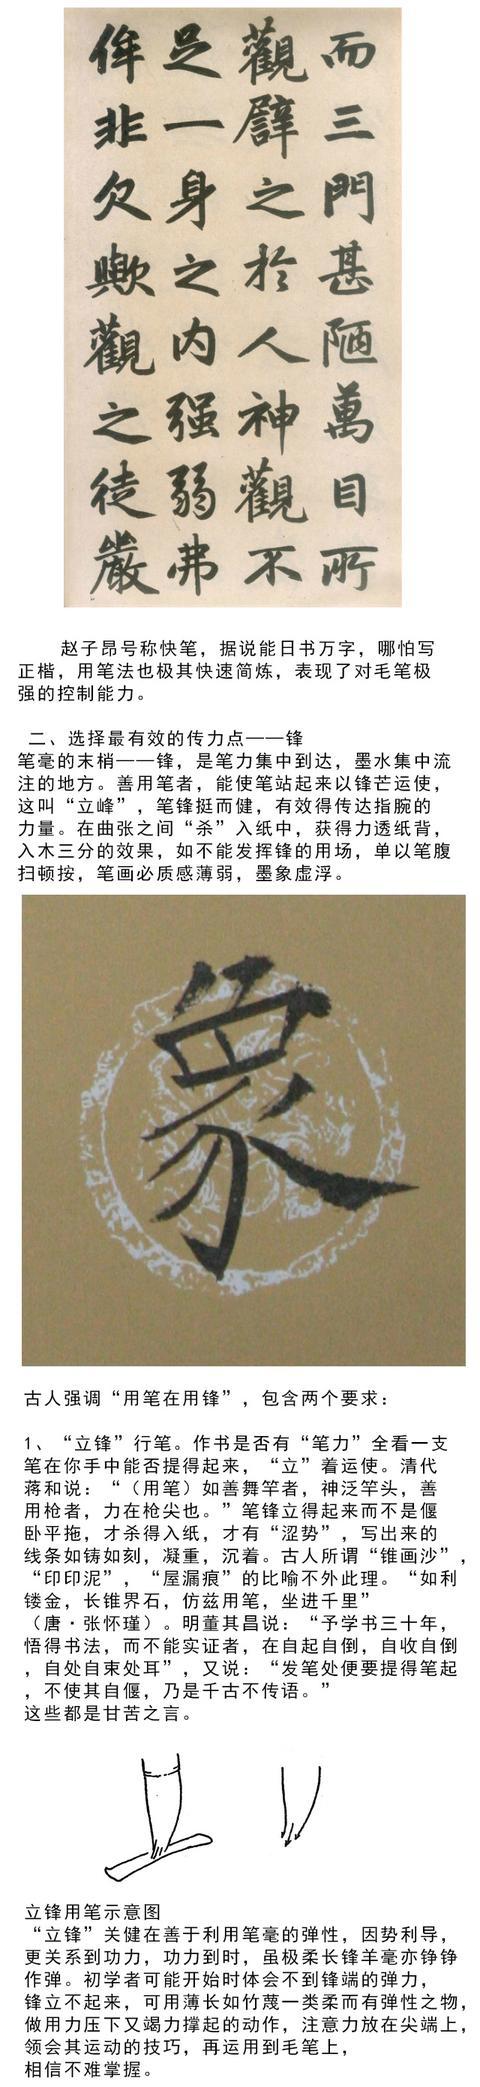 而三門甚陋萬目所
觀譬之於人神觀不
足一身之内强弱弗
侔非欠歟觀之徒嚴
赵子昂号称快笔，据说能日书万字，哪怕写
正楷，用笔法也极其快速简炼，表现了对毛笔极
强的控制能力。
二、选择最有效的传力点——锋
笔毫的末梢——锋，是笔力集中到达，墨水集中流
注的地方。善用笔者，能使笔站起来以锋芒运使，
这叫“立峰”，笔锋挺而健，有效得传达指腕的
力量。在曲张之间“杀”入纸中，获得力透纸背，
入木三分的效果，如不能发挥锋的用场，单以笔腹
扫顿按，笔画必质感薄弱，墨象虚浮。
象
古人强调“用笔在用锋”，包含两个要求：
1、“立锋”行笔。作书是否有“笔力”全看一支
笔在你手中能否提得起来，“立”着运使。清代
蒋和说：“（用笔）如善舞竿者，神泛竿头，善
用枪者，力在枪尖也。”笔锋立得起来而不是偃
卧平拖，才杀得入纸，才有“涩势”，写出来的
线条如铸如刻，凝重，沉着。古人所谓“锥画沙”，
“印印泥”，“屋漏痕”的比喻不外此理。“如利
镂金，长锥界石，仿兹用笔，坐进千里”
（唐·张怀瑾）。明董其昌说：“予学书三十年，
悟得书法，而不能实证者，在自起自倒，自收自倒
，自处自束处耳”，又说：“发笔处便要提得笔起
，不使其自偃，乃是千古不传语。”
这些都是甘苦之言。
立锋用笔示意图
“立锋”关健在善于利用笔毫的弹性，因势利导，
更关系到功力，功力到时，虽极柔长锋羊毫亦铮铮
作弹。初学者可能开始时体会不到锋端的弹力，
锋立不起来，可用薄长如竹蔑一类柔而有弹性之物，
做用力压下又竭力撑起的动作，注意力放在尖端上，
领会其运动的技巧，再运用到毛笔上，
相信不难掌握。